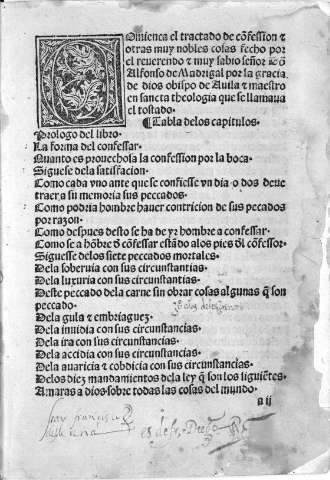 Comiença el tractado de cõfession &
otras muy nobles cosas fecho por
el reuerendo & muy sabio señor
Alfonso de Madrigal por la gracia
de dios obispo de Auila & maestro
en sancta theologia que se llamaua
el tostado.
¶Tabla delos capitulos.
Prologo del libro.
La forma del confessar.
Quanto es prouechosa la confession por la boca.
Siguese dela satisfacion.
Como cada vno ante que se confiesse vn dia o dos deue
traer a su memoria sus peccados.
Como podria hombre hauer contricion de sus pecados
por razon.
Como despues desto se ha de yr hombre a confessar.
Como se a hõbre d̃ cõfessar estãdo alos pies d̃l cõfessor.
Siguesse delos siete peccados mortales.
Dela soberuia con sus circunstantias.
Dela luxuria con sus circunstantias.
Deste peccado dela carne sin obrar cosas algunas q̃ son
peccado.
Dela gula & embriaguez.
Dela inuidia con sus circunstancias.
Dela ira con sus circunstancias.
Dela accidia con sus circunstancias.
Dela auaricia & cobdicia con sus circunstancias.
Delos diez mandamientos dela ley q̃ son los siguiẽtes.
Amaras a dios sobre todas las cosas del mundo.
a ij
fray francisco
es de fr. Diego